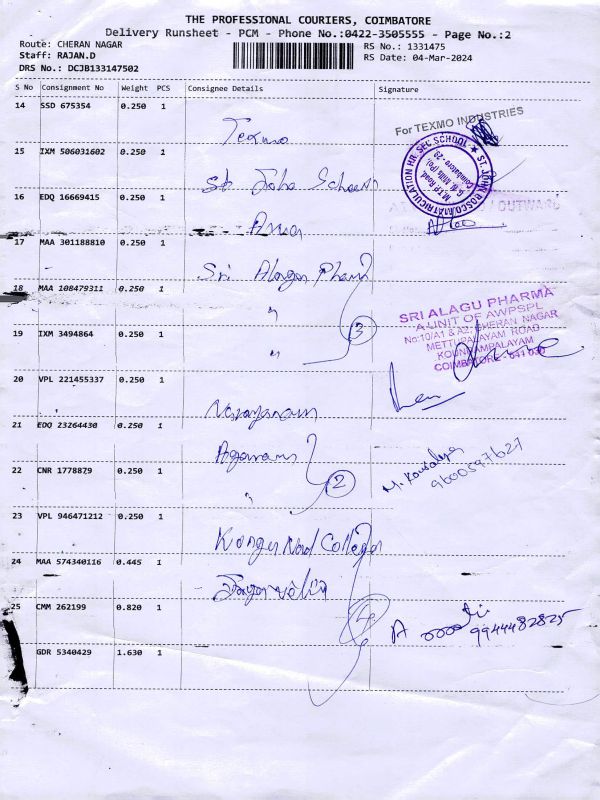 THE PROFESSIONAL COURIERS, COIMBATORE
Delivery Runsheet - PCM - Phone No.:0422-3505555 - Page No.:2
Route: CHERAN NAGAR
RS No.: 1331475
Staff: RAJAN.D
RS Date: 04-Mar-2024
DRS No.: DCJB133147502
S No Consignment No Weight PCS Consignee Details Signature
14 SSD 675354 0.250 1
For TEXMO INDUSTRIES
Texmo
15 IXM 506031602 0.250 1
ST. JOHN BOSCO MATRICULATION HR. SEC SCHOOL ★
M.T.P Road,
G.N Mills (Po),
Coimbatore - 29
St John School
16 EDQ 16669415 0.250 1
17 MAA 301188810 0.250 1
Sri Alagar Pharm
18 MAA 108479311 0.250 1
"
SRI ALAGU PHARMA
A UNIT OF AWPSPL
No:10/A1 & A2, CHERAN NAGAR
METTUPALAYAM ROAD
KOUNDAMPALAYAM
COIMBATORE - 641 030
19 IXM 3494864 0.250 1
" 3
20 VPL 221455337 0.250 1
Narayanan
21 EDQ 23264430 0.250 1
22 CNR 1778879 0.250 1
" 2
M. Kousalya
9600597627
23 VPL 946471212 0.250 1
24 MAA 574340116 0.445 1
25 CMM 262199 0.820 1
4
9944482825
GDR 5340429 1.630 1